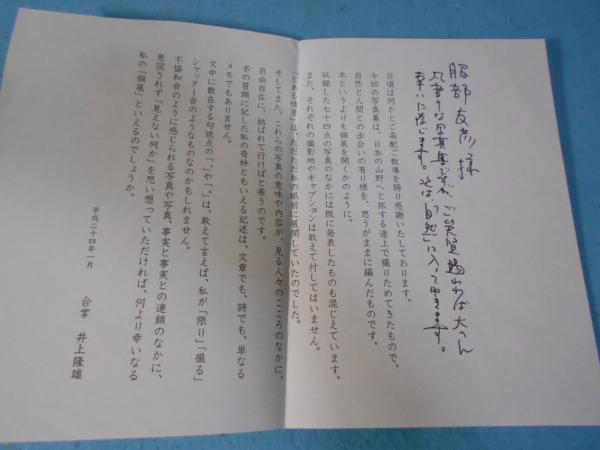 服部友彦様
風変りな写真集ですが、ご笑覧賜われば大へん
幸いに存じます。そは「自然」に入ってゆきます。
日頃は何かとご高配ご教導を賜り感謝いたしております。
今回の写真集は、日本の山野へと旅する途上で撮りためてきたもので、
自然と人間との出合いの有り様を、思うがままに編んだものです。
本というよりも個展を開くかのように。
収録した七十四点の写真のなかには既に発表したものも混じえています。
また、それぞれの撮影地やキャプションは敢えて付してはいません。
「とある情景」は、ただただ私の眼前に展開していたのでした。
そしてまた、これらの写真の意味や内容が、見る人々のこころのなかに。
自由自在に、結ばれて行けばと希うのです。
本の冒頭に記した私の奇妙ともいえる記述は、文章でも、詩でも、単なる
メモでもありません。
文中に散在する句読点の「、」や「。」は、敢えて言えば、私が「限り」「撮る」
シャッター音のようなものなのかもしれません。
不協和音のように感じられる写真や写真。事実と事実との連鎖のなかに、
意図されず「見えない何か」を思い想っていただければ、何より幸いなる
私の「個展」といえるのでしょうか。
平成二十四年一月
合掌 井上隆雄